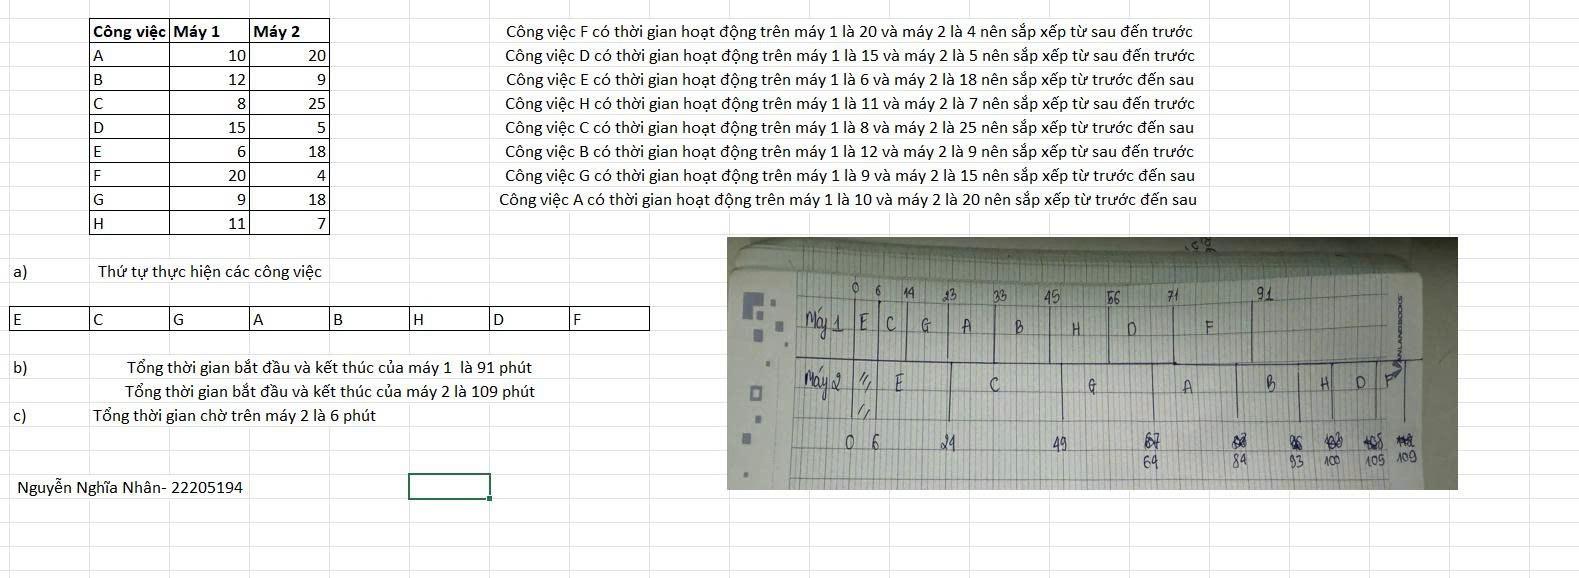 Công việc Máy 1 Máy 2
A 10 20
B 12 9
C 8 25
D 15 5
E 6 18
F 20 4
G 9 18
H 11 7
Công việc F có thời gian hoạt động trên máy 1 là 20 và máy 2 là 4 nên sắp xếp từ sau đến trước
Công việc D có thời gian hoạt động trên máy 1 là 15 và máy 2 là 5 nên sắp xếp từ sau đến trước
Công việc E có thời gian hoạt động trên máy 1 là 6 và máy 2 là 18 nên sắp xếp từ trước đến sau
Công việc H có thời gian hoạt động trên máy 1 là 11 và máy 2 là 7 nên sắp xếp từ sau đến trước
Công việc C có thời gian hoạt động trên máy 1 là 8 và máy 2 là 25 nên sắp xếp từ trước đến sau
Công việc B có thời gian hoạt động trên máy 1 là 12 và máy 2 là 9 nên sắp xếp từ sau đến trước
Công việc G có thời gian hoạt động trên máy 1 là 9 và máy 2 là 15 nên sắp xếp từ trước đến sau
Công việc A có thời gian hoạt động trên máy 1 là 10 và máy 2 là 20 nên sắp xếp từ trước đến sau
a) Thứ tự thực hiện các công việc
E C G A B H D F
b) Tổng thời gian bắt đầu và kết thúc của máy 1 là 91 phút
Tổng thời gian bắt đầu và kết thúc của máy 2 là 109 phút
c) Tổng thời gian chờ trên máy 2 là 6 phút
Nguyễn Nghĩa Nhân- 22205194
0 6 14 23 33 45 56 71 91
Máy 1 E C G A B H D F
Máy 2 E C G A B H D F
0 6 24 49 67
64 84 93 100 105 109